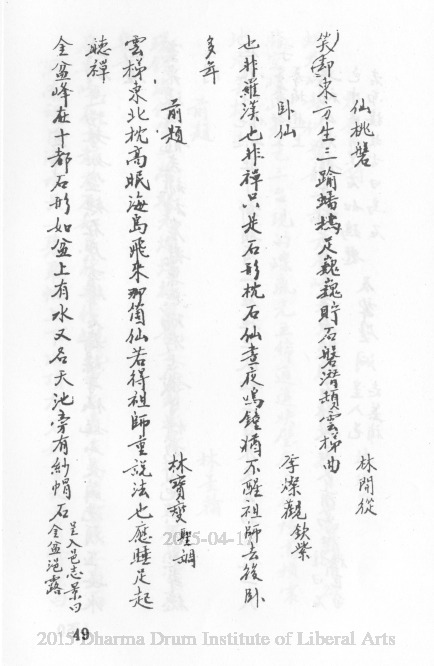 仙桃磐　林開從
東方生三踰蟠桃足巍巍貯石磐潛赬雲梯曲
臥仙　李燦觀欽紫
也非羅漢也非禪只是石形枕石仙晝夜鳴鐘猶不醒祖師去後臥
多年
前題　林寶聖娟
雲梯東北枕高眠海島飛來那箇仙若得祖師重說法也應睡足起
聽禪
金盆峰在十都石形如盆上有水又名天池旁有紗帽石邑志景曰金盆浥露
49
2025-04-17
2015 Dharma Drum Institute of Liberal Arts